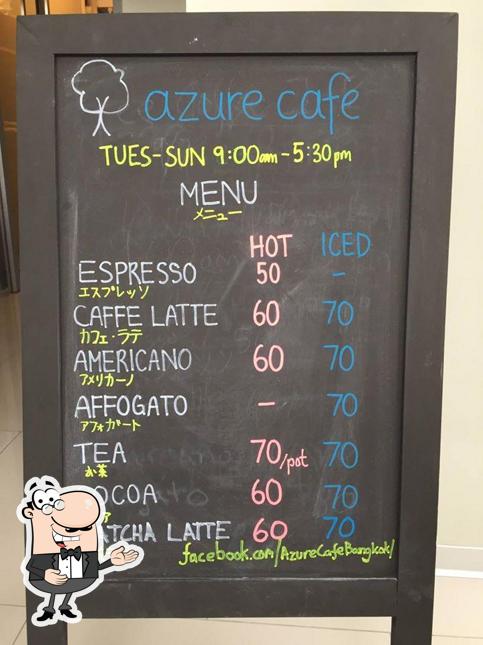 azure café
TUES-SUN 9:00am-5:30pm
MENU
メニュー
HOT ICED
ESPRESSO 50 -
エスプレッソ
CAFFE LATTE 60 70
カフェ・ラテ
AMERICANO 60 70
アメリカーノ
AFFOGATO - 70
アフォガート
TEA 70/pot 70
お茶
OCOA 60 70
ア
ATCHA LATTE 60 70
facebook.com/AzureCafeBangkok/